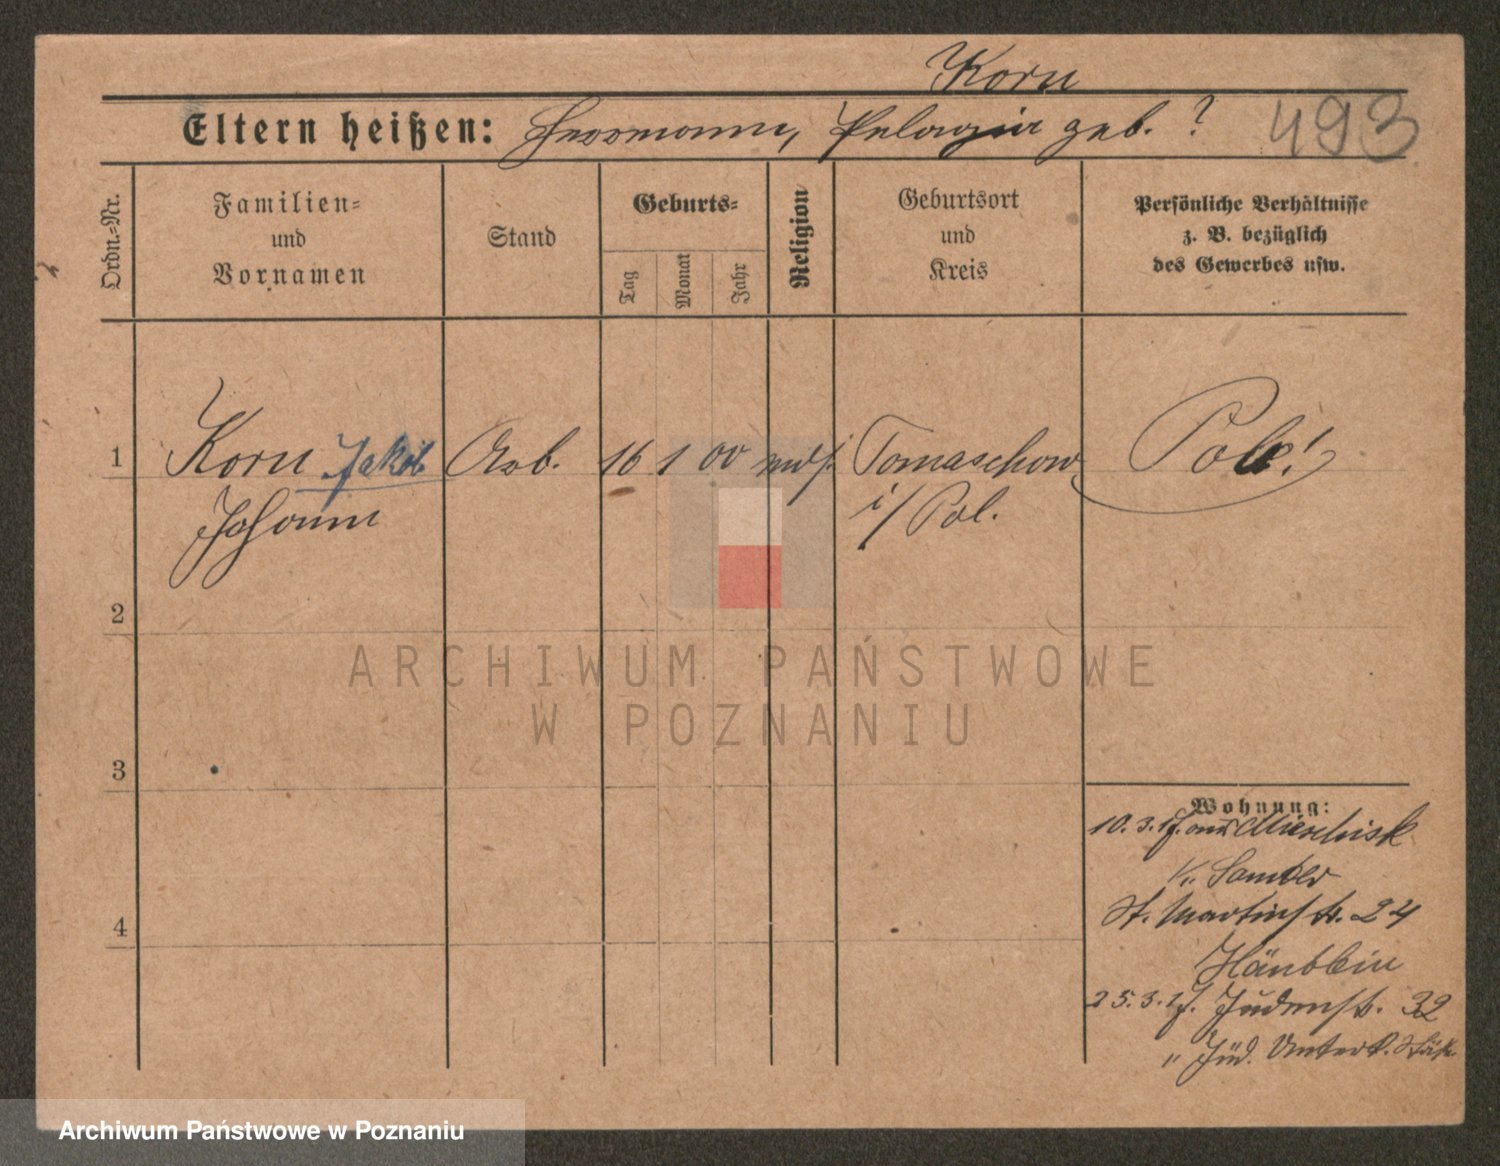 Korn
Eltern heißen: Hermann, Pelagia geb. ?
493
Ordn.-Nr.
Familien-
und
Vornamen
Stand
Geburts-
Tag
Monat
Jahr
Religion
Geburtsort
und
Kreis
Persönliche Verhältnisse
z. B. bezüglich
des Gewerbes usw.
1 Korn Jakob Arb. 16 1 00 mos. Tomaschow Pole!
Johann i/ Pol.
2
3
4
Wohnung:
10.3.17. aus Mieschisk
St. Martinstr. 24
25.3.17. Judenstr. 32
" Jüd.
ARCHIWUM PAŃSTWOWE
W POZNANIU
Archiwum Państwowe w Poznaniu